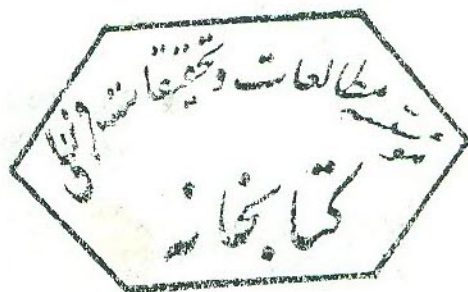 مؤسسه مطالعات و تحقیقات اجتماعی
کتابخانه